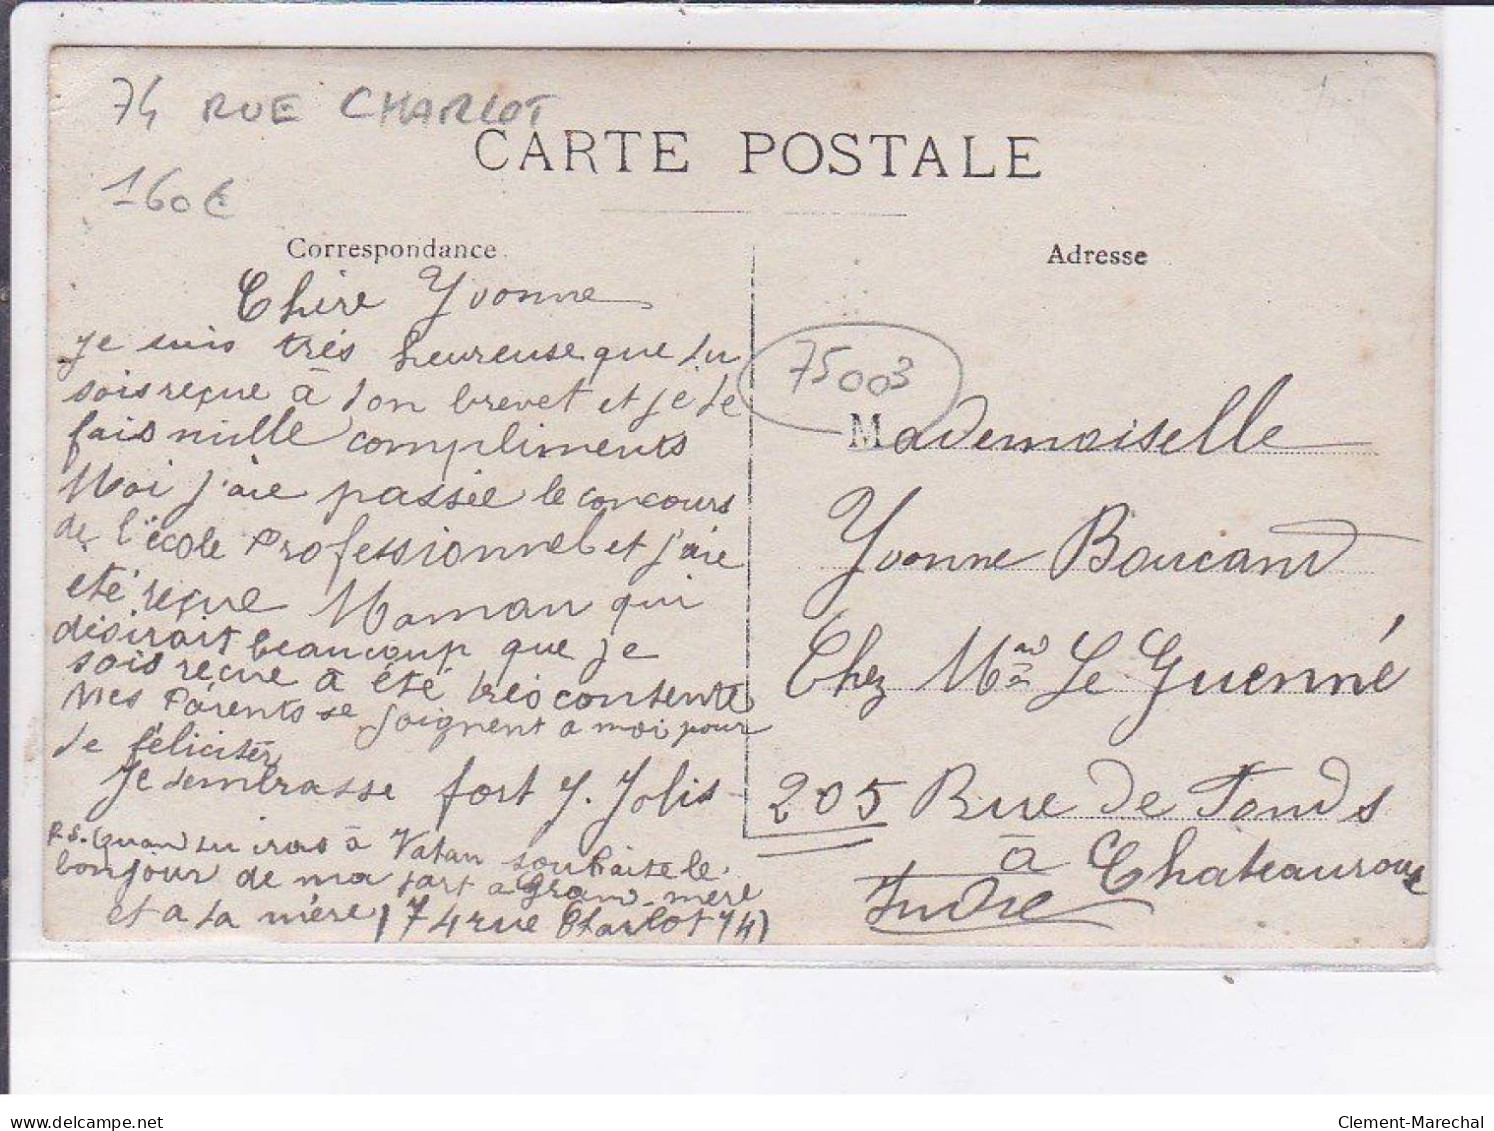 74 RUE CHARLOT
CARTE POSTALE
160€
Correspondance
Adresse
Chère Yvonne
Je suis très heureuse que tu
sois reçue à ton brevet et je te
fais mille compliments
Moi j'aie passée le concours
de l'école Professionnel et j'aie
eté reçue Maman qui
désirait beaucoup que je
sois reçue à été très contente
Mes Parents se joignent a moi pour
te féliciter
Je t'embrasse fort Y. Jolis
P.S. (quand tu iras à Vatan souhaite le
bonjour de ma part a Grand-mère
et a ta mère) (74 rue Charlot 74)
75003
Mademoiselle
Yvonne Boucand
Chez Mme Le Guenné
205 Rue de Fonds
à Chateauroux
Indre
delcampe.net
Clement-Marechal